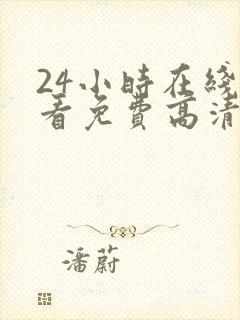 24小時在綫
看免費高清
潘蔚